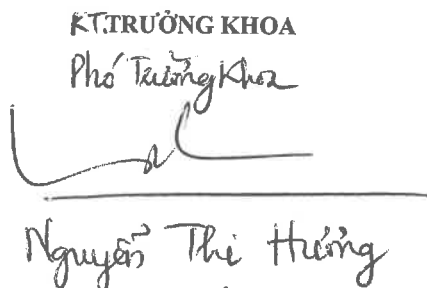 KT.TRƯỞNG KHOA
Phó Trưởng Khoa
Nguyễn Thị Hường